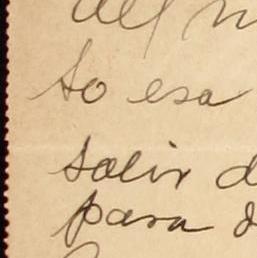 del m
to esa
salir d
para d